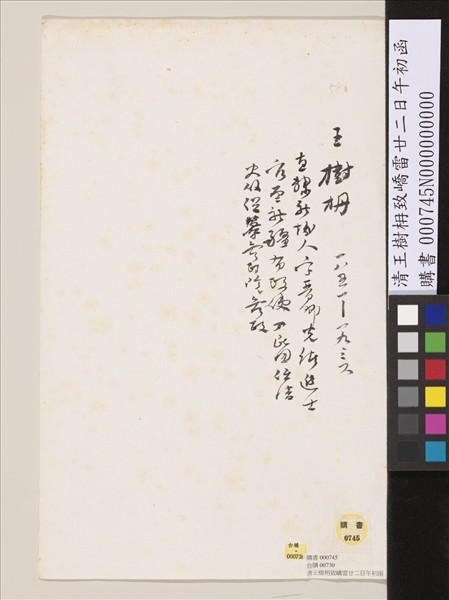 王樹枏 一八五一—一九三六
直隸新城人字晉卿光緒進士
官至新疆布政使 民國任清
史館總纂
清王樹枏致嶠雷廿二日午初函
購書 000745N000000000
購書
0745
台購
購書 000745
台購 00730
清王樹枏致嶠雷廿二日午初函